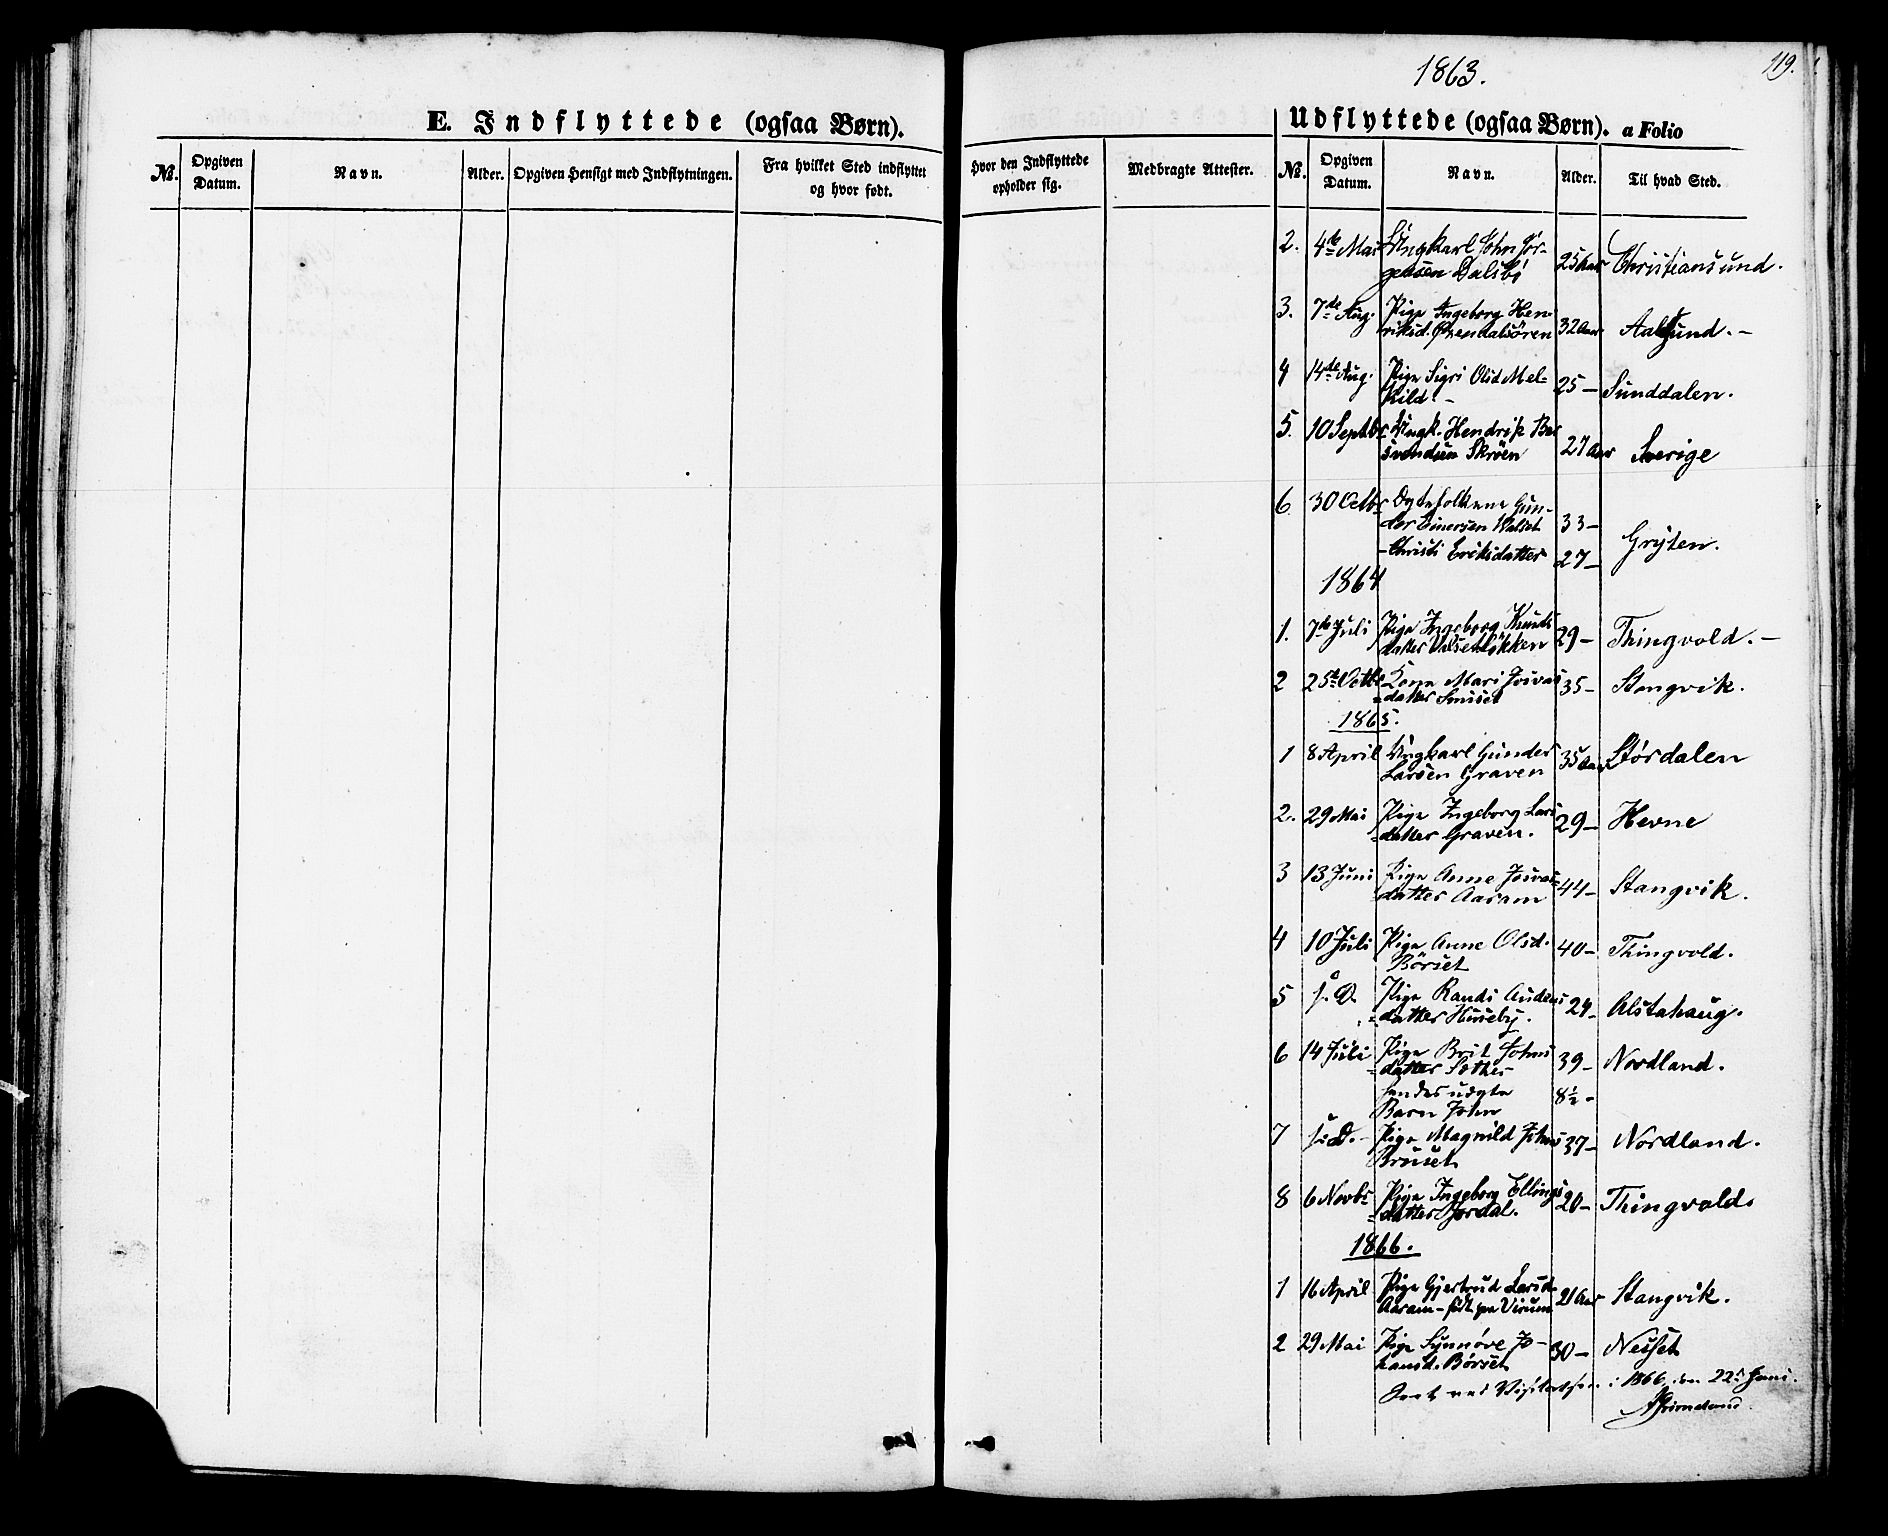 1863.
119.
E. Indflyttede (ogsaa Børn).
Udflyttede (ogsaa Børn). a Folio
No. Opgiven Datum. Navn. Alder. Opgiven Hensigt med Indflytningen. Fra hvilket Sted indflyttet og hvor født. Hvor den Indflyttede opholder sig. Medbragte Attester. No. Opgiven Datum. Navn. Alder. Til hvad Sted.
2. 4de Mai Ungkarl John Jør-
gensen Dalsbø 25 Aar Christiansund.
3. 7de Aug. Pige Ingeborg Hen-
riksd. Øxendalsören 32 Aar Aalesund. -
4 14de Aug. Pige Sigri Olsd Mel-
kild. - 25 - Sunddalen.
5. 10 Septbr Ungk. Hendrik
Skrøen 27 Aar Sverige
6 30 Octbr Ægtefolkene Gun-
der Einersen 33 -
Christi Eriksdatter 27 - Gryten.
1864
1. 7de Juli Pige Ingeborg Knuds
datter 29 - Thingvold. -
2 25de Octbr Kone Mari
datter 35 - Stangvik.
1865.
1 8 April Ungkarl Gunder
Larsen Graven 35 Aar Størdalen
2. 29 Mai Pige Ingeborg Lars
=datter Graven. 29 - Hevne
3 13 Juni Pige Anne
=datter Aaram 44 - Stangvik.
4 10 Juli Pige Anne Olsd.
Børset 40 - Thingvold.
5 s. D. Pige Randi
=datter Huseby. 24 - Alstahaug.
6 14 Juli Pige Brit Johns
=datter Sæther 39 - Nordland.
hendes uægte
Barn John 8½ -
7 s. D. - Pige Magnild Johns
Bruset 37 - Nordland.
8 6 Novbr Pige Ingeborg Ellings
=datter Jordal. 20 - Thingvold
1866.
1 16 April Pige Gjertrud Larsd.
Aaram - født paa Virum 21 Aar Stangvik.
2 29 Mai Pige Synnøve Jo-
hansd. Børset 30 - Nesset
Seet ved Visitatsen i 1866, den 22de Juni.